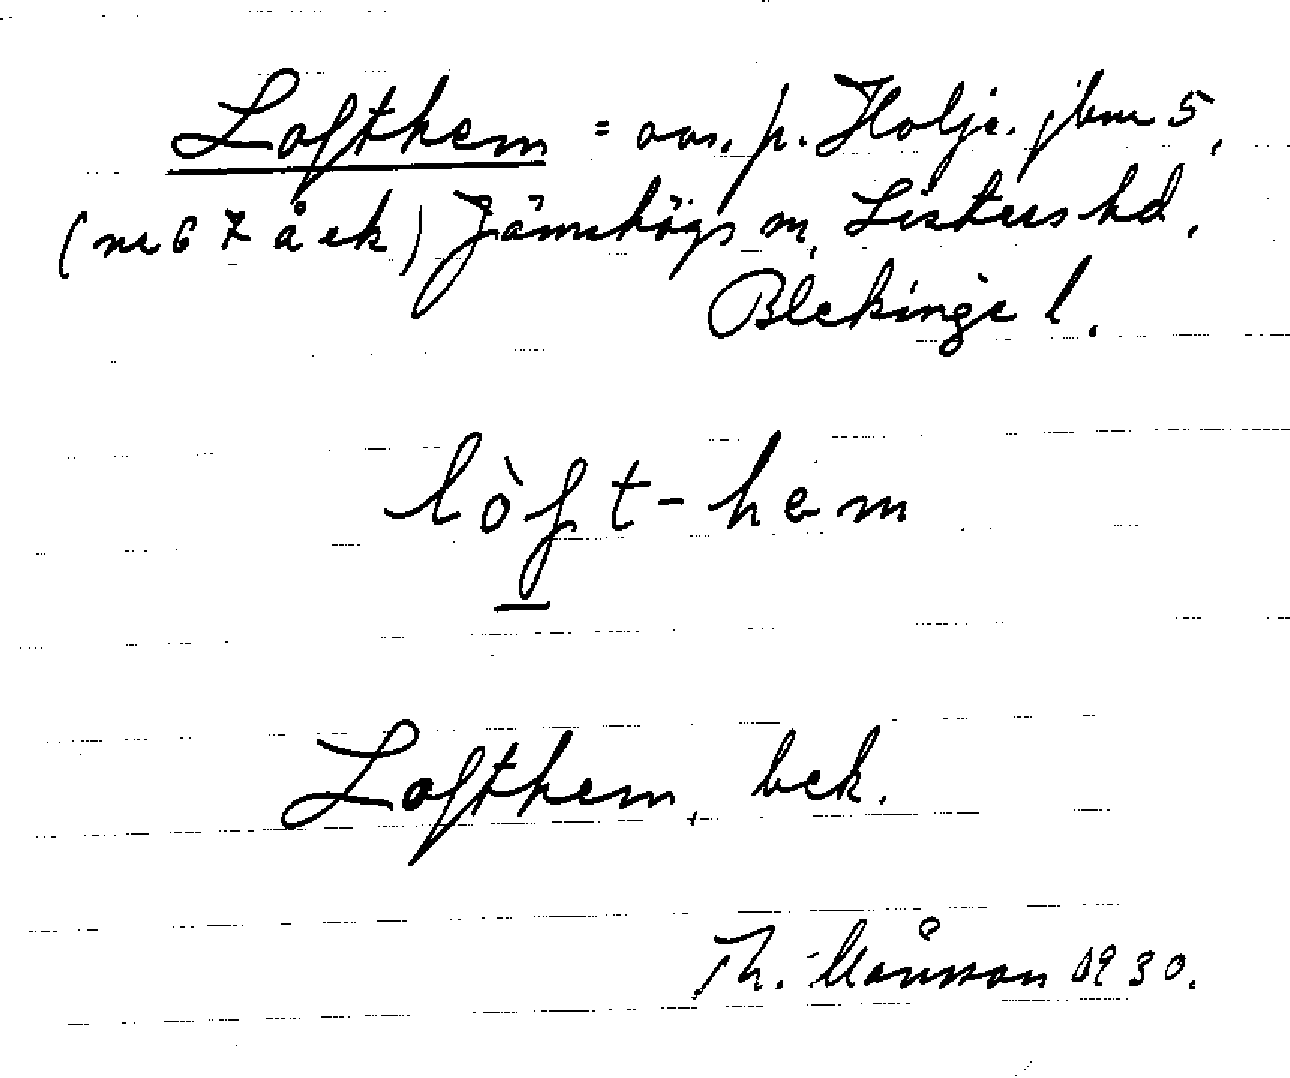 Lofthem = avs. p. Holje. jbnr 5,
(nr 67 å ek) Jämshögs sn, Listers hd,
Blekinge l.
lòft-hem
Lofthem, bek.
Th. Månsson 1930.